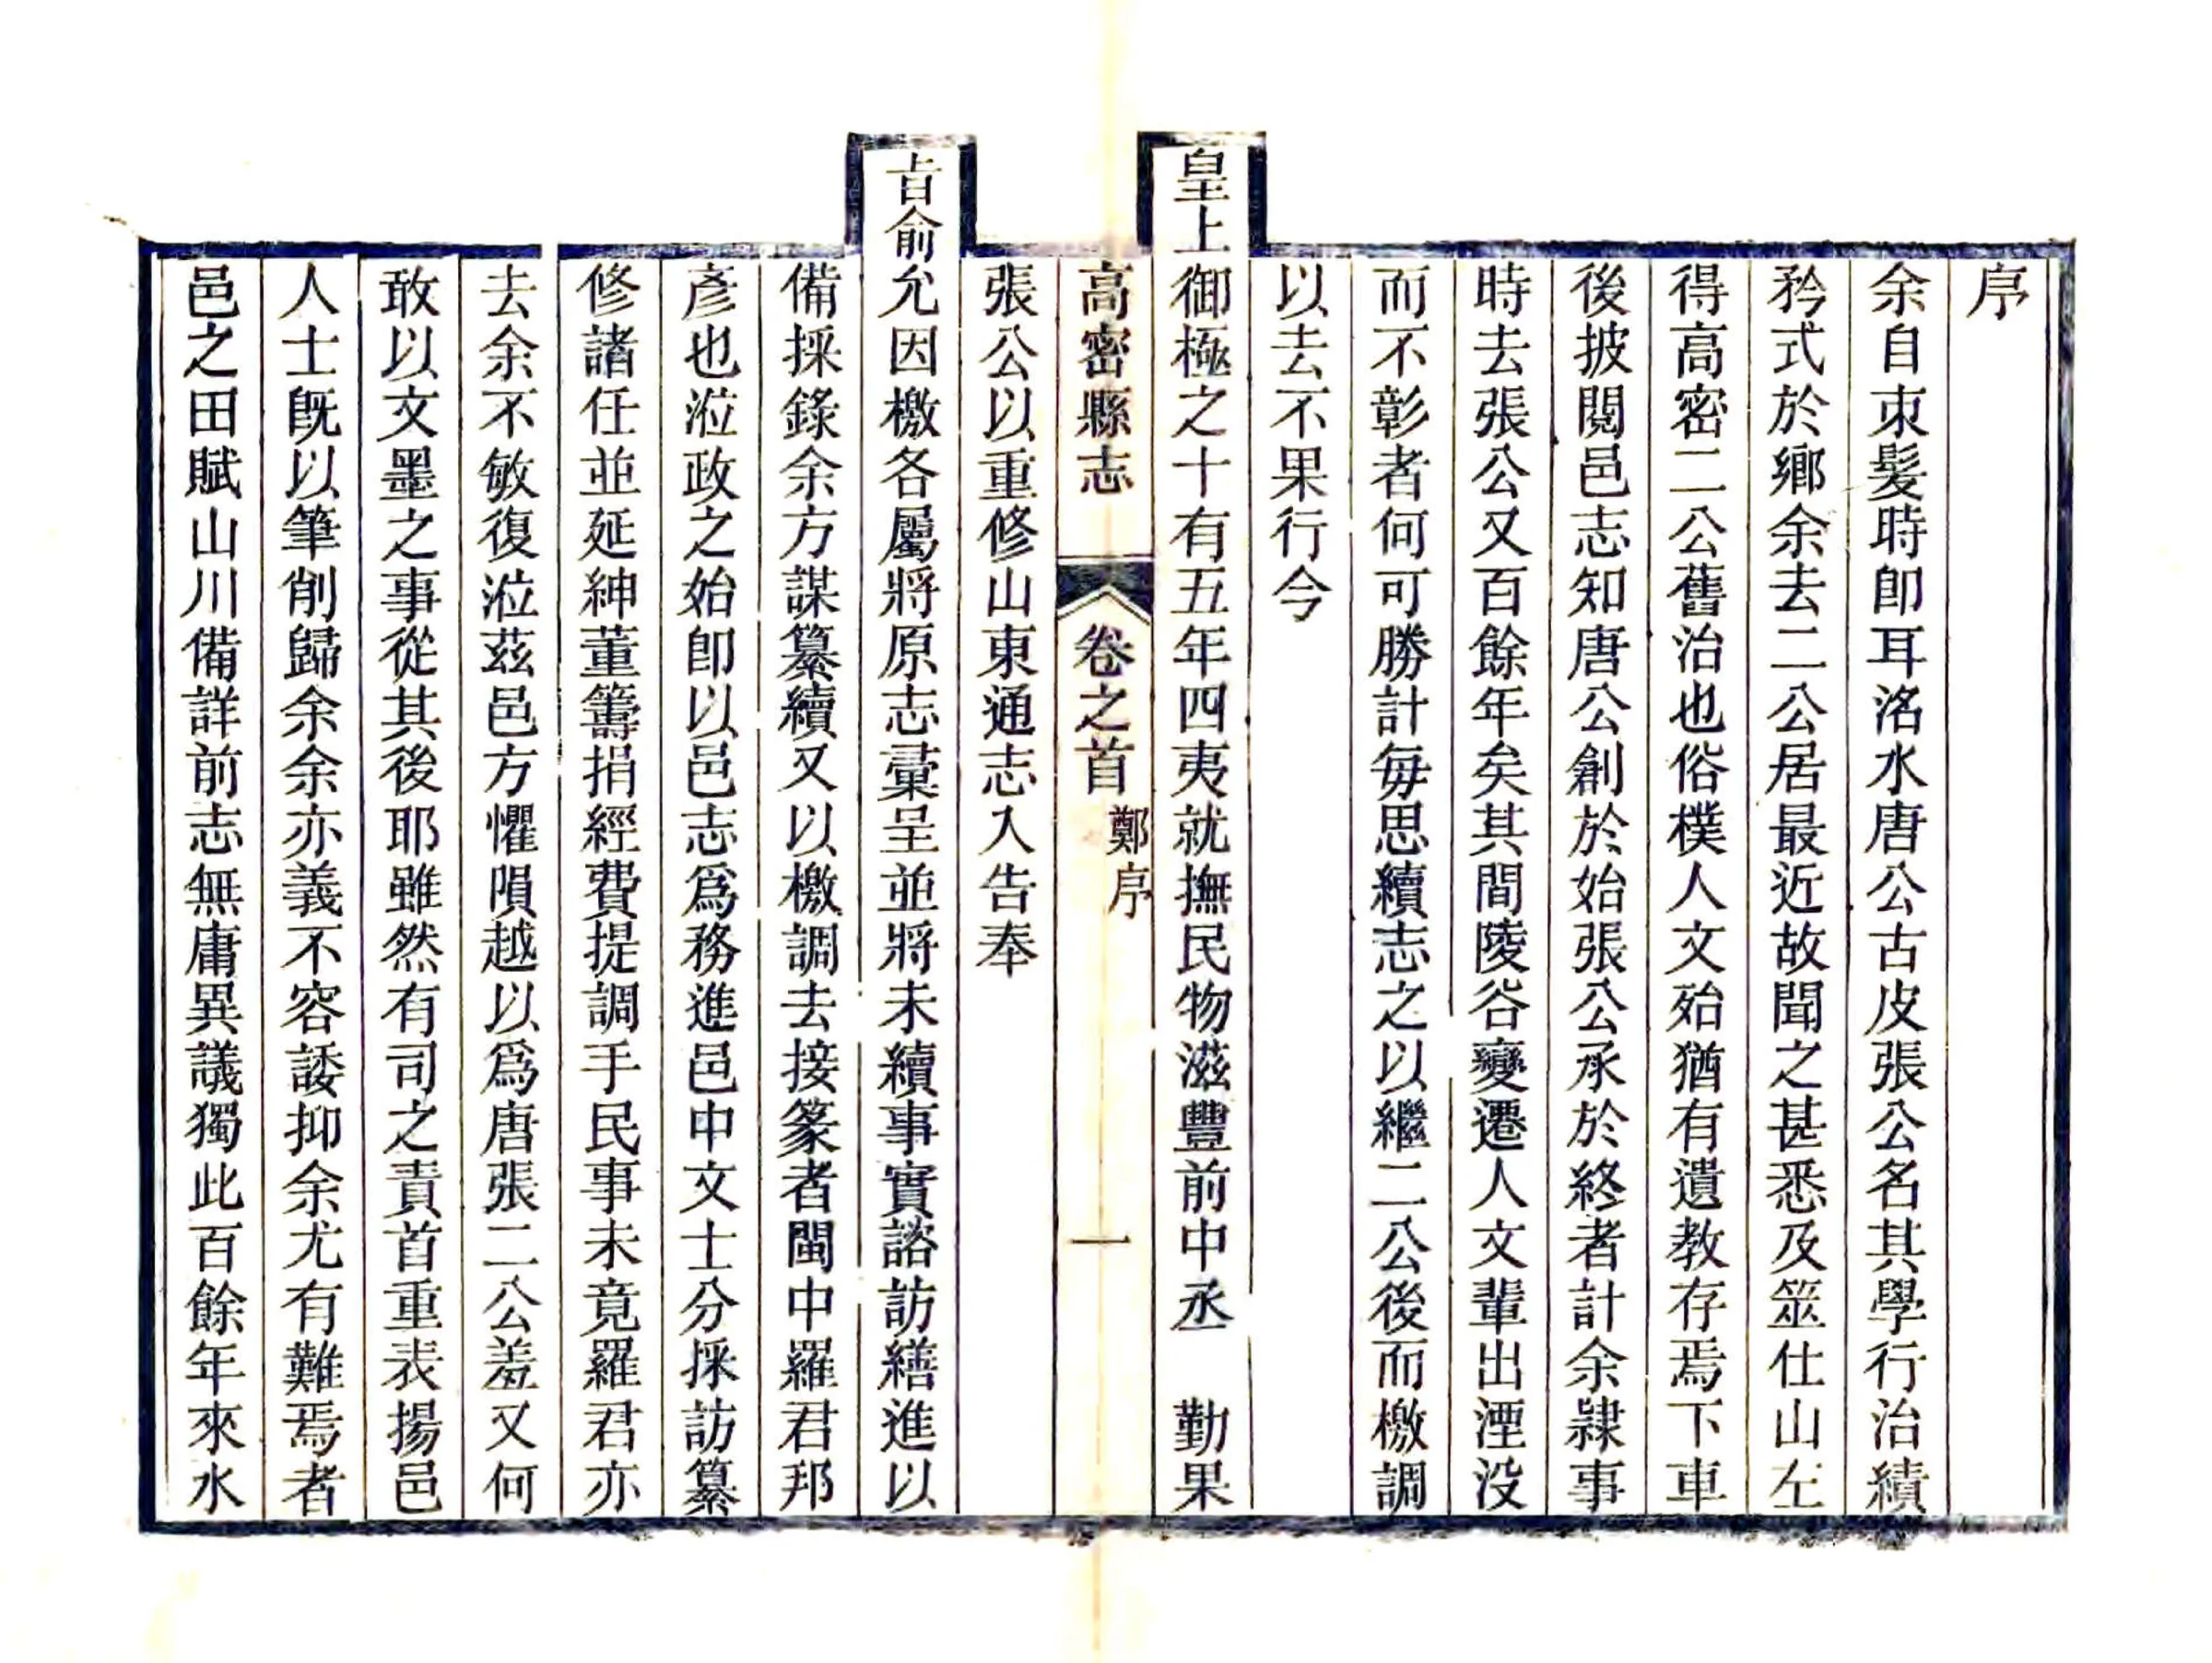 序
余自朿髮時卽耳洺水唐公古皮張公名其學行治績
矜式於鄉余去二公居最近故聞之甚悉及筮仕山左
得高密二公舊治也俗樸人文殆猶有遺教存焉下車
後披閱邑志知唐公創於始張公承於終者計余隷事
時去張公又百餘年矣其間陵谷變遷人文輩出湮没
而不彰者何可勝計每思續志之以繼二公後而檄調
以去不果行今
皇上御極之十有五年四夷就撫民物滋豐前中丞　勤果
高密縣志　卷之首　鄭序　一
張公以重修山東通志入告奉
旨俞允因檄各屬將原志彙呈並將未續事實諮訪繕進以
備採錄余方謀纂續又以檄調去接篆者閩中羅君邦
彥也涖政之始卽以邑志爲務進邑中文士分採訪纂
修諸任並延紳董籌捐經費提調手民事未竟羅君亦
去余不敏復涖茲邑方懼隕越以爲唐張二公羞又何
敢以文墨之事從其後耶雖然有司之責首重表揚邑
人士旣以筆削歸余余亦義不容諉抑余尤有難焉者
邑之田賦山川備詳前志無庸異議獨此百餘年來水